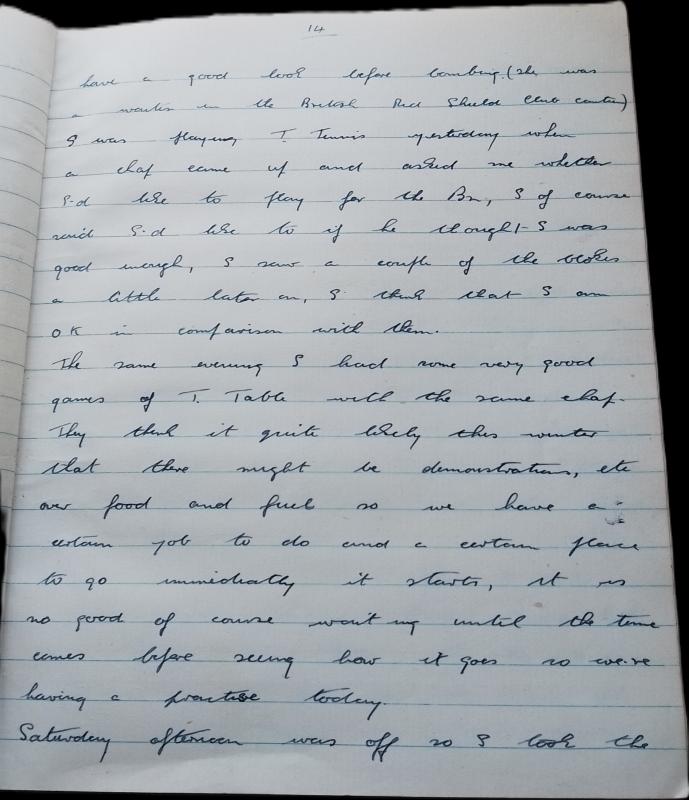 14
have a good look before bombing. (she was
a waiter in the British Red Shield Club canteen)
I was playing T. Tennis yesterday when
a chap came up and asked me whether
I'd like to play for the Bn, I of course
said I'd like to if he thought I was
good enough, I saw a couple of the blokes
a little later on, I think that I am
OK in comparison with them.
The same evening I had some very good
games of T. Table with the same chap.
They think it quite likely this winter
that there might be demonstrations, etc
over food and fuel so we have a
certain job to do and a certain place
to go immediately it starts, it is
no good of course waiting until the time
comes before seeing how it goes so we're
having a practise today.
Saturday afternoon was off so I took the